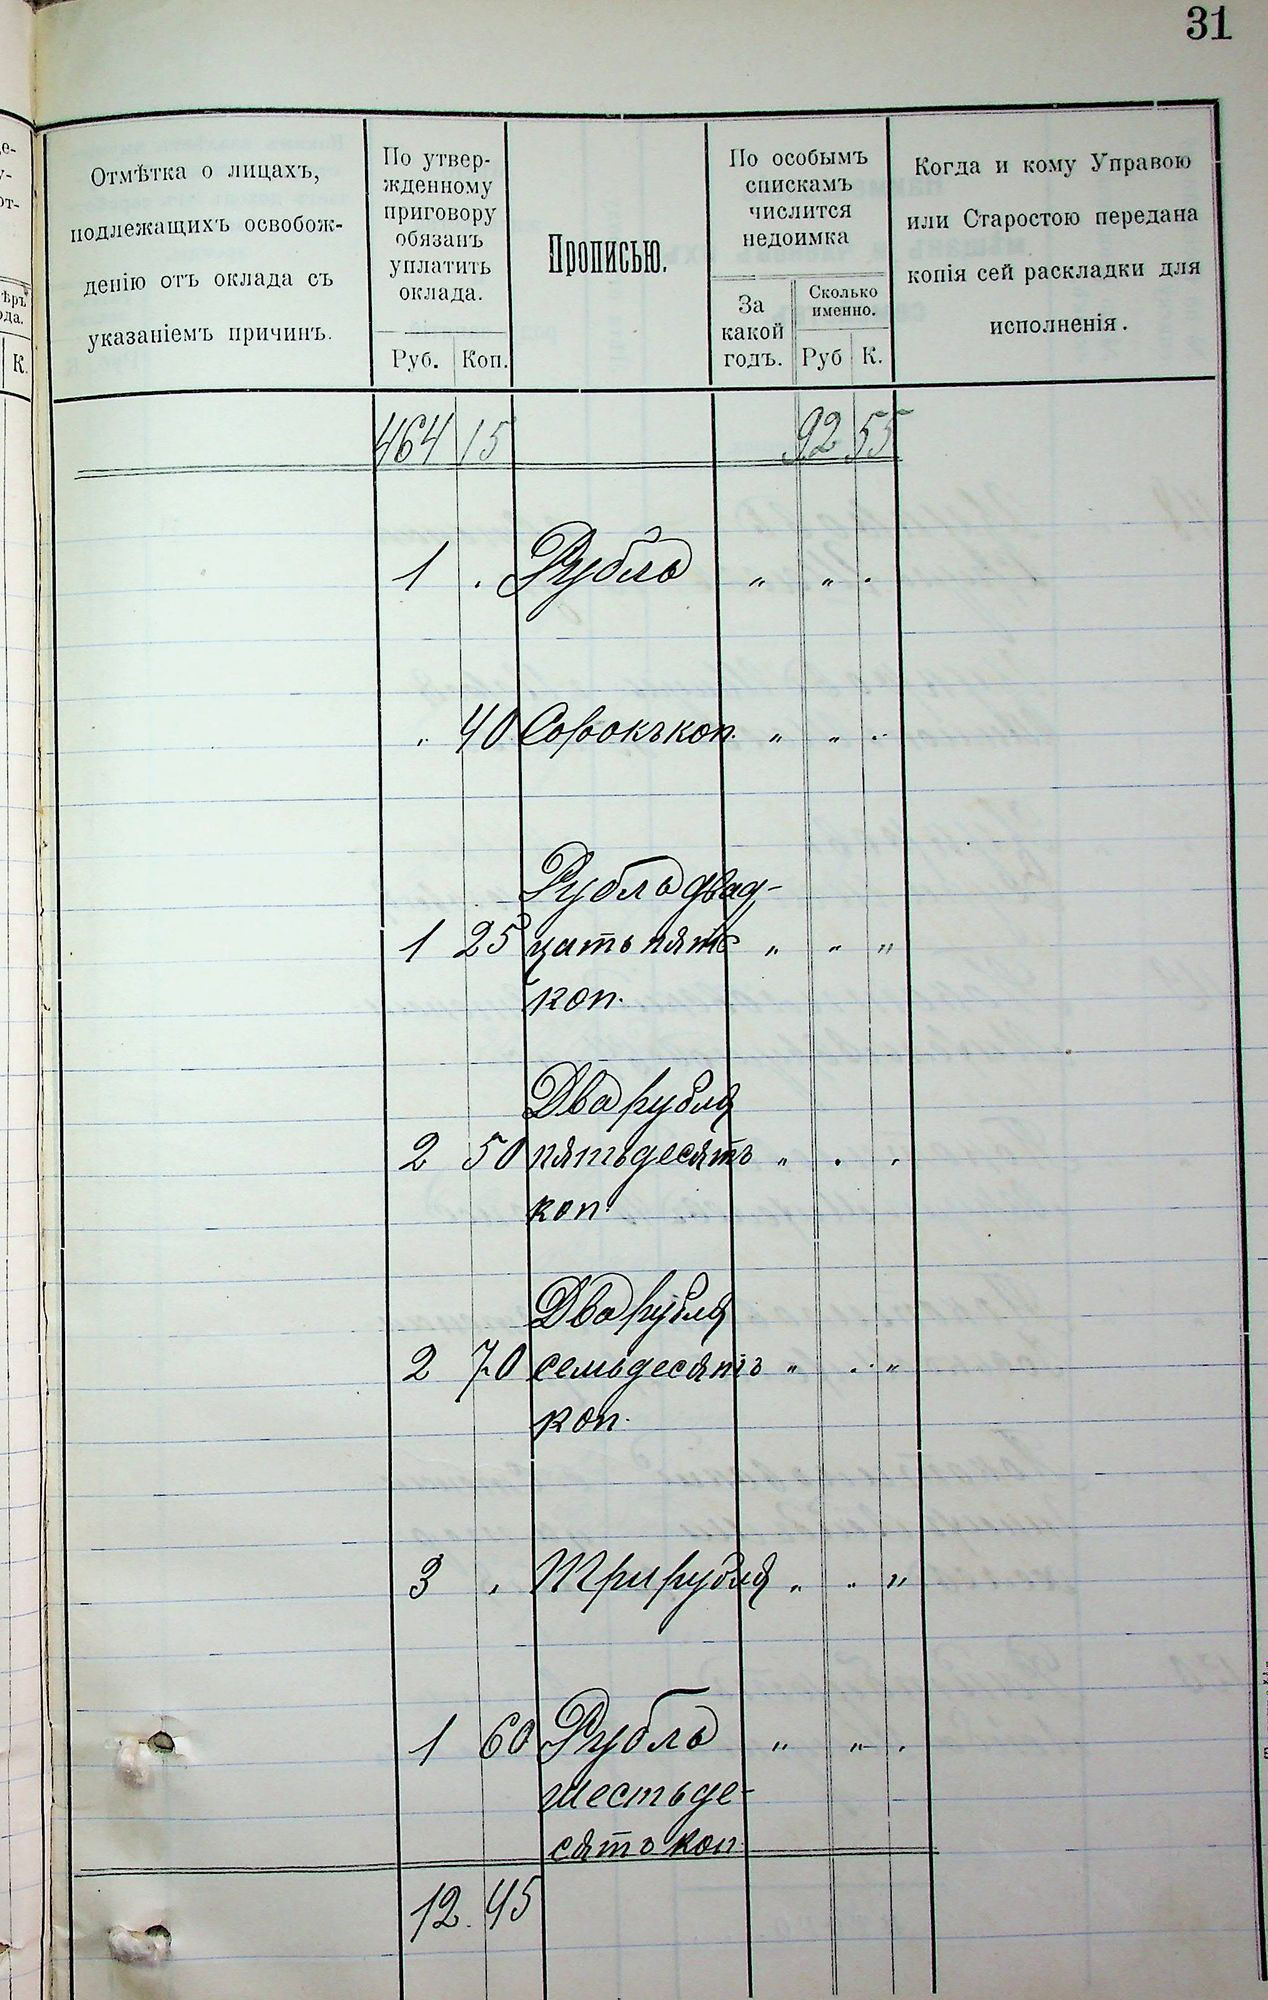 31
Отмѣтка о лицахъ,
подлежащихъ освобож-
денію отъ оклада съ
указаніемъ причинъ.
По утвер-
жденному
приговору
обязанъ
уплатить
оклада.
Руб. Коп.
Прописью.
По особымъ
спискамъ
числится
недоимка
За
какой
годъ.
Сколько
именно.
Руб К.
Когда и кому Управою
или Старостою передана
копія сей раскладки для
исполненія.
К.
464 15 92 55
1 . Рубль „ „ .
„ 40 Сорокъ коп. „ „ „
Рубль двад-
1 25 цать пять „ „ „
коп.
Два рубля
2 50 пятьдесятъ „ . .
коп.
Два рубля
2 70 семьдесятъ „ „ „
коп.
3 . Три рубля „ „ „
1 60 Рубль „ „ .
шестьде-
сятъ коп.
12. 45